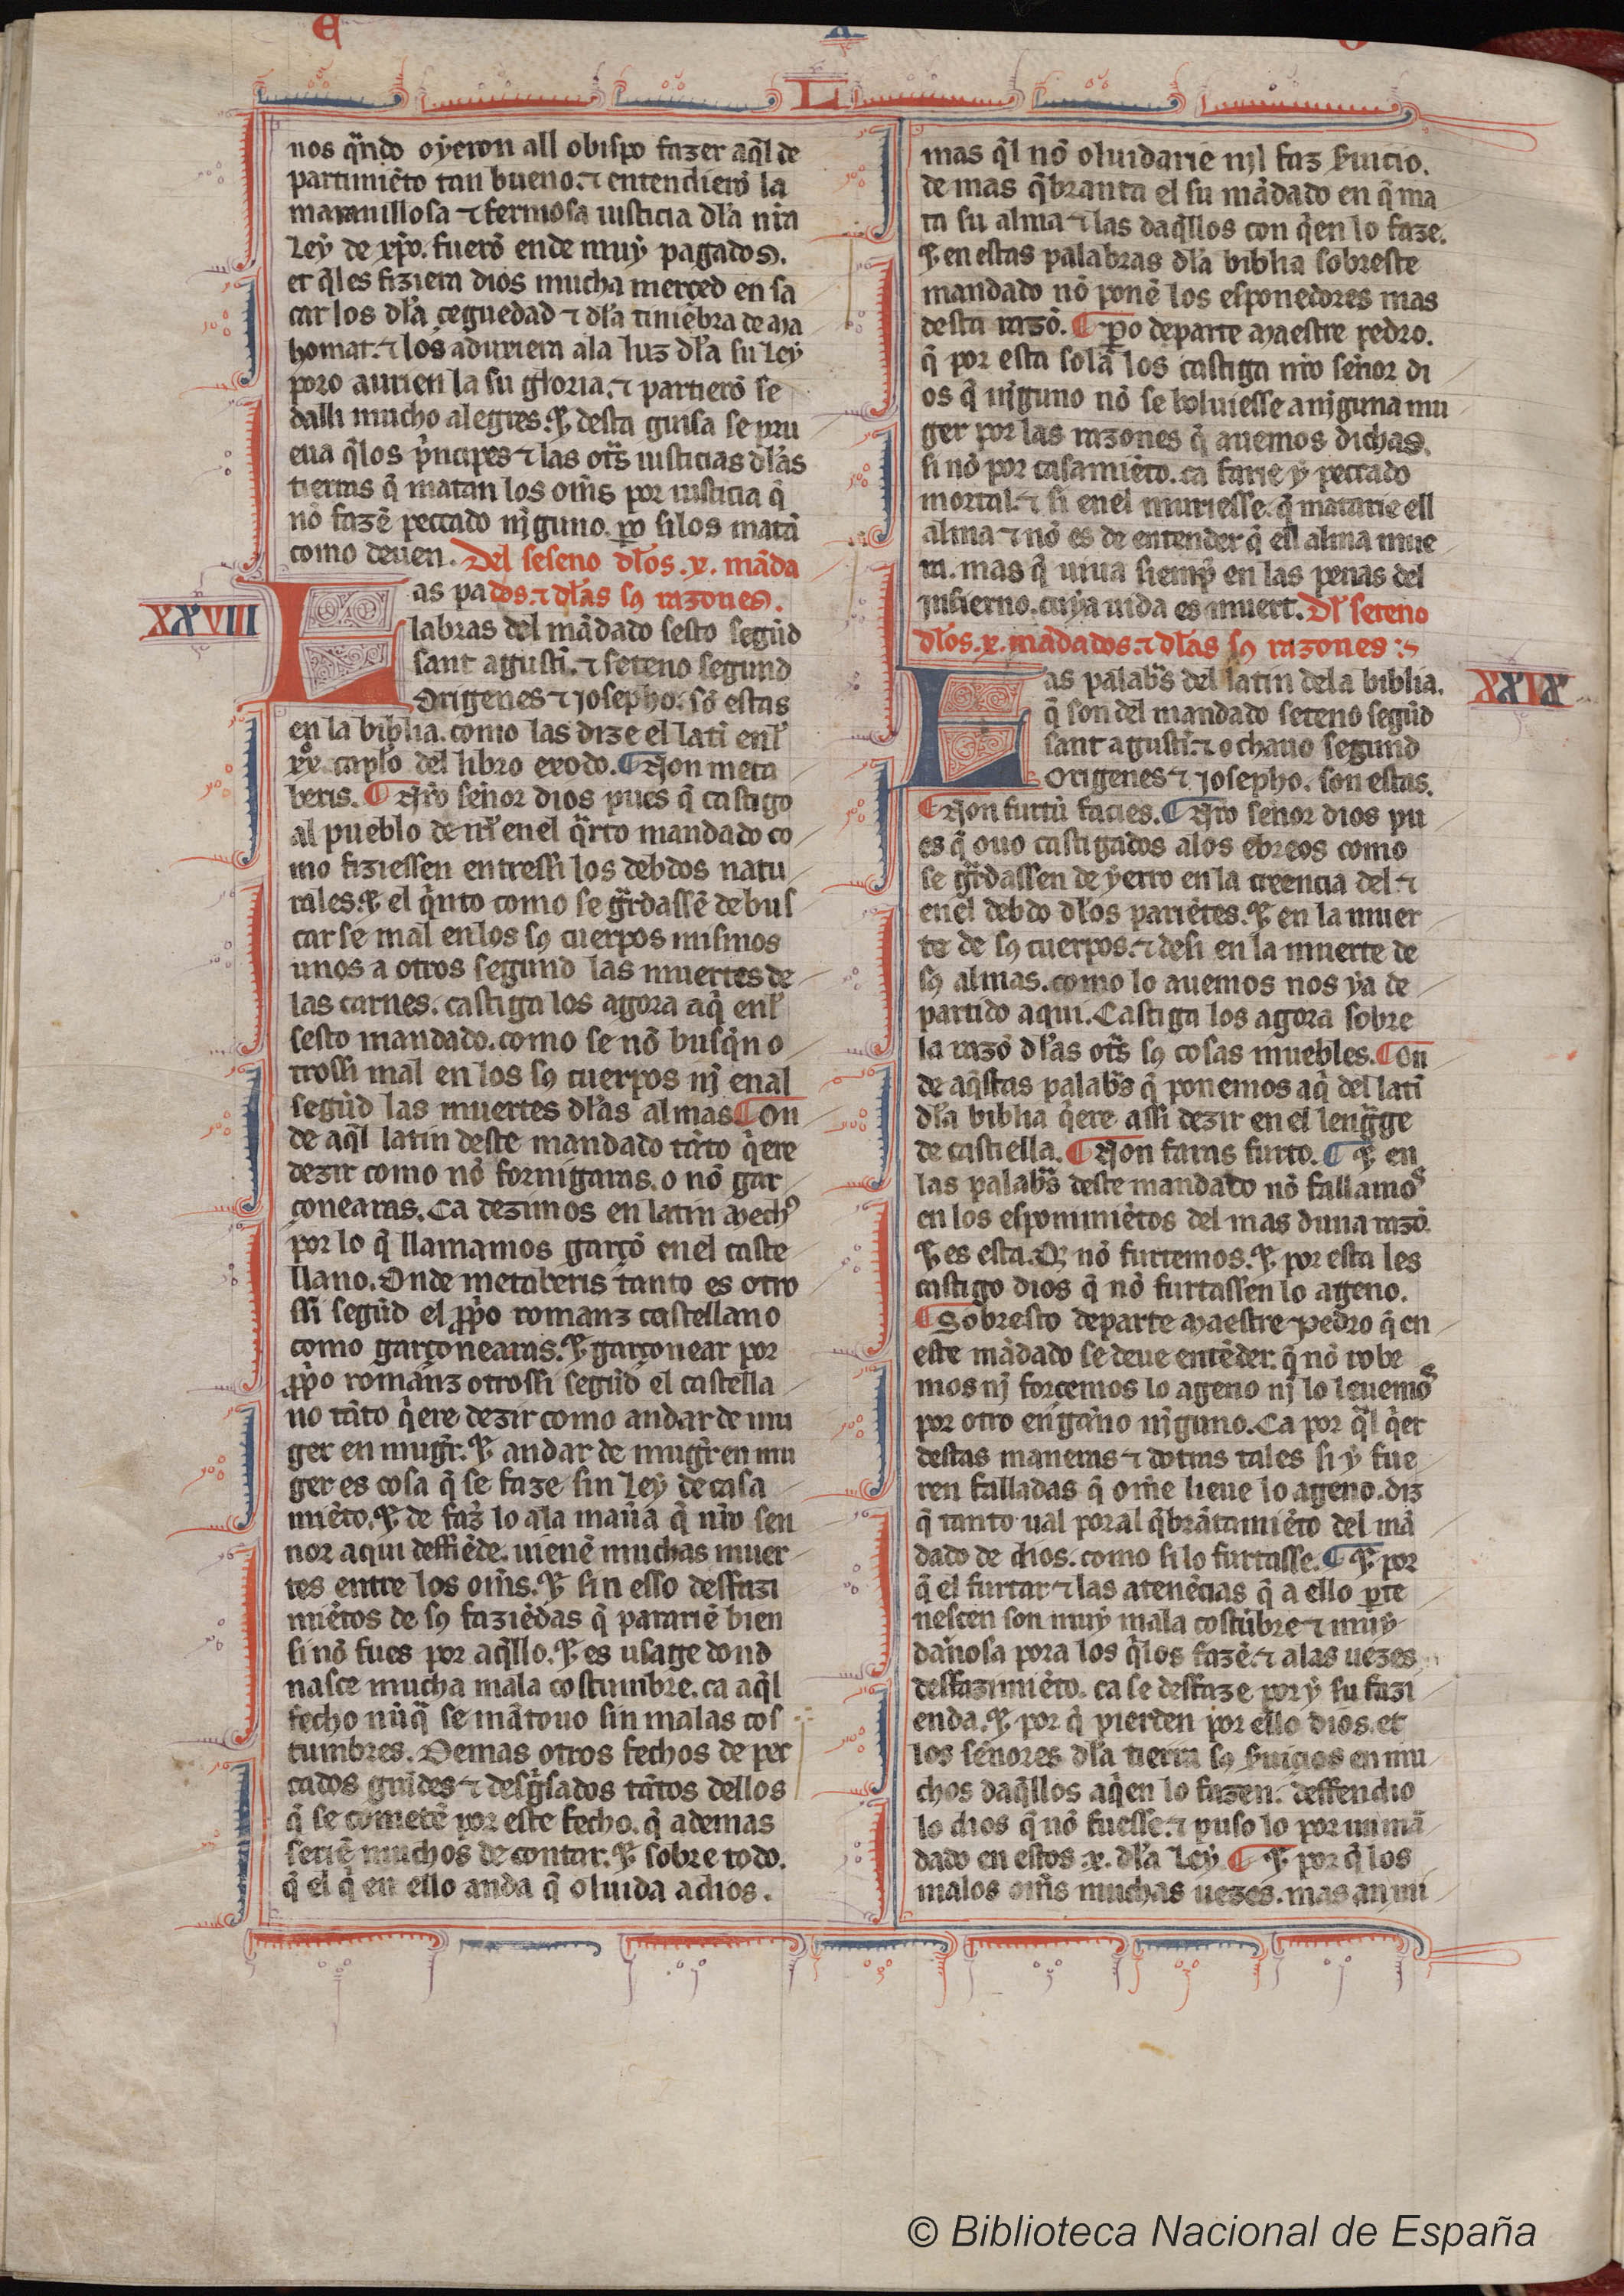 E
L
nos q̃ndo oyeron all obispo fazer aq̃l de
partimiẽto tan bueno. ⁊ entendierõ la
marauillosa ⁊ fermosa iusticia dl̃a nr̃a
Ley de xp̃o. fuerõ ende muy pagados.
et q̃les fiziera dios mucha merçed en sa
car los dl̃a çeguedad ⁊ dl̃a tiniebra de Ma
homat. ⁊ los aduxiera ala luz dl̃a su Ley
poro aurien la su gloria. ⁊ partierõ se
dalli mucho alegres. ⁊ desta guisa se pru
eua q̃los p̃ncipes ⁊ las otr̃s iusticias dl̃as
tierras q̃ matan los om̃s por iusticia q̃
nõ fazẽ peccado nj̃guno. ꝑo silos matã
como deuen. Del seseno dl̃os .x. mãda
dos. ⁊ dl̃as sꝯ razones.
XXVIII
Las pa
labras del mãdado sesto segũd
sant agustĩ. ⁊ seteno segund
Origenes ⁊ Josepho. sõ estas
en la biblia. como las dize el latĩ enl̃
xx. capl̃o del libro exodo. ¶ Non meca
beris. ¶ Nr̃o señor dios pues q̃ castigo
al pueblo de isrl̃ enel q̃rto mandado co
mo fiziessen entressi los debdos natu
rales. ⁊ el q̃nto como se gr̃dassẽ debus
car se mal enlos sꝯ cuerpos mismos
unos a otros segund las muertes de
las carnes. castiga los agora aq̃ enl̃
sesto mandado. como se nõ busq̃n o
trossi mal en los sꝯ cuerpos nj̃ enal
segũd las muertes dl̃as almas ¶ On
de aq̃l latin deste mandado tãto q̃ere
dezir como nõ fornigaras. o nõ gar
çonearas. Ca dezimos en latin Mechꝰ
por lo q̃ llamamos garçõ enel caste
llano. Onde mecaberis tanto es otro
ssi segũd el ꝓp̃o romanz castellano
como garçonearas. ⁊ garçonear por
ꝓp̃o romanz otrossi segũd el castella
no tãto q̃ere dezir como andar de mu
ger en mugr̃. ⁊ andar de mugr̃ en mu
ger es cosa q̃ se faze sin Ley de casa
miẽto. ⁊ de faz̃ lo ala mañ̃a q̃ nr̃o sen
nor aqui deffiẽde. uienẽ muchas muer
tes entre los om̃s. ⁊ sin esso desfazi
miẽtos de sꝯ faziẽdas q̃ parariẽ bien
si nõ fues por aq̃llo. ⁊ es usage dond
nasce mucha mala costumbre. ca aq̃l
fecho nũq̃ se mãtouo sin malas cos
tumbres. Demas otros fechos de pec
cados grãdes ⁊ desg̃sados tãtos dellos
q̃ se cometẽ por este fecho. q̃ ademas
seriẽ muchos de contar. ⁊ sobre todo.
q̃ el q̃ en ello anda q̃ oluida a dios.
mas q̃l nõ oluidarie nj̃l faz s̃uicio.
de mas q̃branta el su mãdado en q̃ ma
ta su alma ⁊ las daq̃llos con q̃en lo faze.
⁊ en estas palabras dl̃a biblia sobreste
mandado nõ ponẽ los esponedores mas
desta razõ. ¶ ꝑo departe Maestre pedro.
q̃ por esta sola los castiga nr̃o señor di
os q̃ nj̃guno nõ se boluiesse a nj̃guna mu
ger por las razones q̃ auemos dichas.
si nõ por casamiẽto. ca farie y peccado
mortal. ⁊ si enel muriesse. q̃ matarie ell
alma ⁊ nõ es de entender q̃ ell alma mue
ra. mas q̃ uiua siemp̃ en las penas del
jnfierno. cuya uida es muert. Dl̃ seteno
dl̃os .x. mãdados. ⁊ dl̃as sꝯ razones :~
XXIX
Las palabr̃s del latin dela biblia.
q̃ son del mandado seteno segũd
sant agustĩ. ⁊ ochauo segund
Origenes ⁊ Josepho. son estas.
¶ Non furtũ facies. ¶ Nr̃o señor dios pu
es q̃ ouo castigados alos ebreos como
se gr̃dassen de yerro en la creencia del ⁊
enel debdo dl̃os pariẽtes. ⁊ en la muer
te de sꝯ cuerpos. ⁊ desi en la muerte de
sꝯ almas. como lo auemos nos ya de
partido aqui. Castiga los agora sobre
la razõ dl̃as otr̃s sꝯ cosas muebles. ¶ On
de aq̃stas palabr̃s q̃ ponemos aq̃ del latĩ
dl̃a biblia q̃ere assi dezir en el leng̃ge
de castiella. ¶ Non faras furto. ¶ ⁊ en
las palabr̃s deste mandado nõ fallamoˢ
en los esponimiẽtos del mas duna razõ.
⁊ es esta. Q̃ nõ furtemos. ⁊ por esta les
castigo dios q̃ nõ furtassen lo ageno.
¶ Sobresto departe Maestre pedro q̃ en
este mãdado se deue entẽder. q̃ nõ robe
mos nj̃ forcemos lo ageno nj̃ lo leuemoˢ
por otro engaño nj̃guno. Ca por q̃l q̃er
destas maneras ⁊ dotras tales si y fue
ren falladas q̃ om̃e lieue lo ageno. diz
q̃ tanto ual poral q̃brãtamiẽto del mã
dado de dios. como si lo furtasse. ¶ ⁊ por
q̃ el furtar ⁊ las atenẽcias q̃ a ello ꝑte
nescen son muy mala costũbre ⁊ muy
dañosa pora los q̃los fazẽ. ⁊ alas uezes
desfazimiẽto. ca se desfaze por y su fazi
enda. ⁊ por q̃ pierden por ello dios. et
los señores dl̃a tierra sꝯ s̃uicios en mu
chos daq̃llos aq̃en lo fazen. deffendio
lo dios q̃ nõ fuesse. ⁊ puso lo por un mã
dado en estos .x. dl̃a Ley. ¶ ⁊ por q̃ los
malos om̃s muchas uezes. mas an mi
© Biblioteca Nacional de España